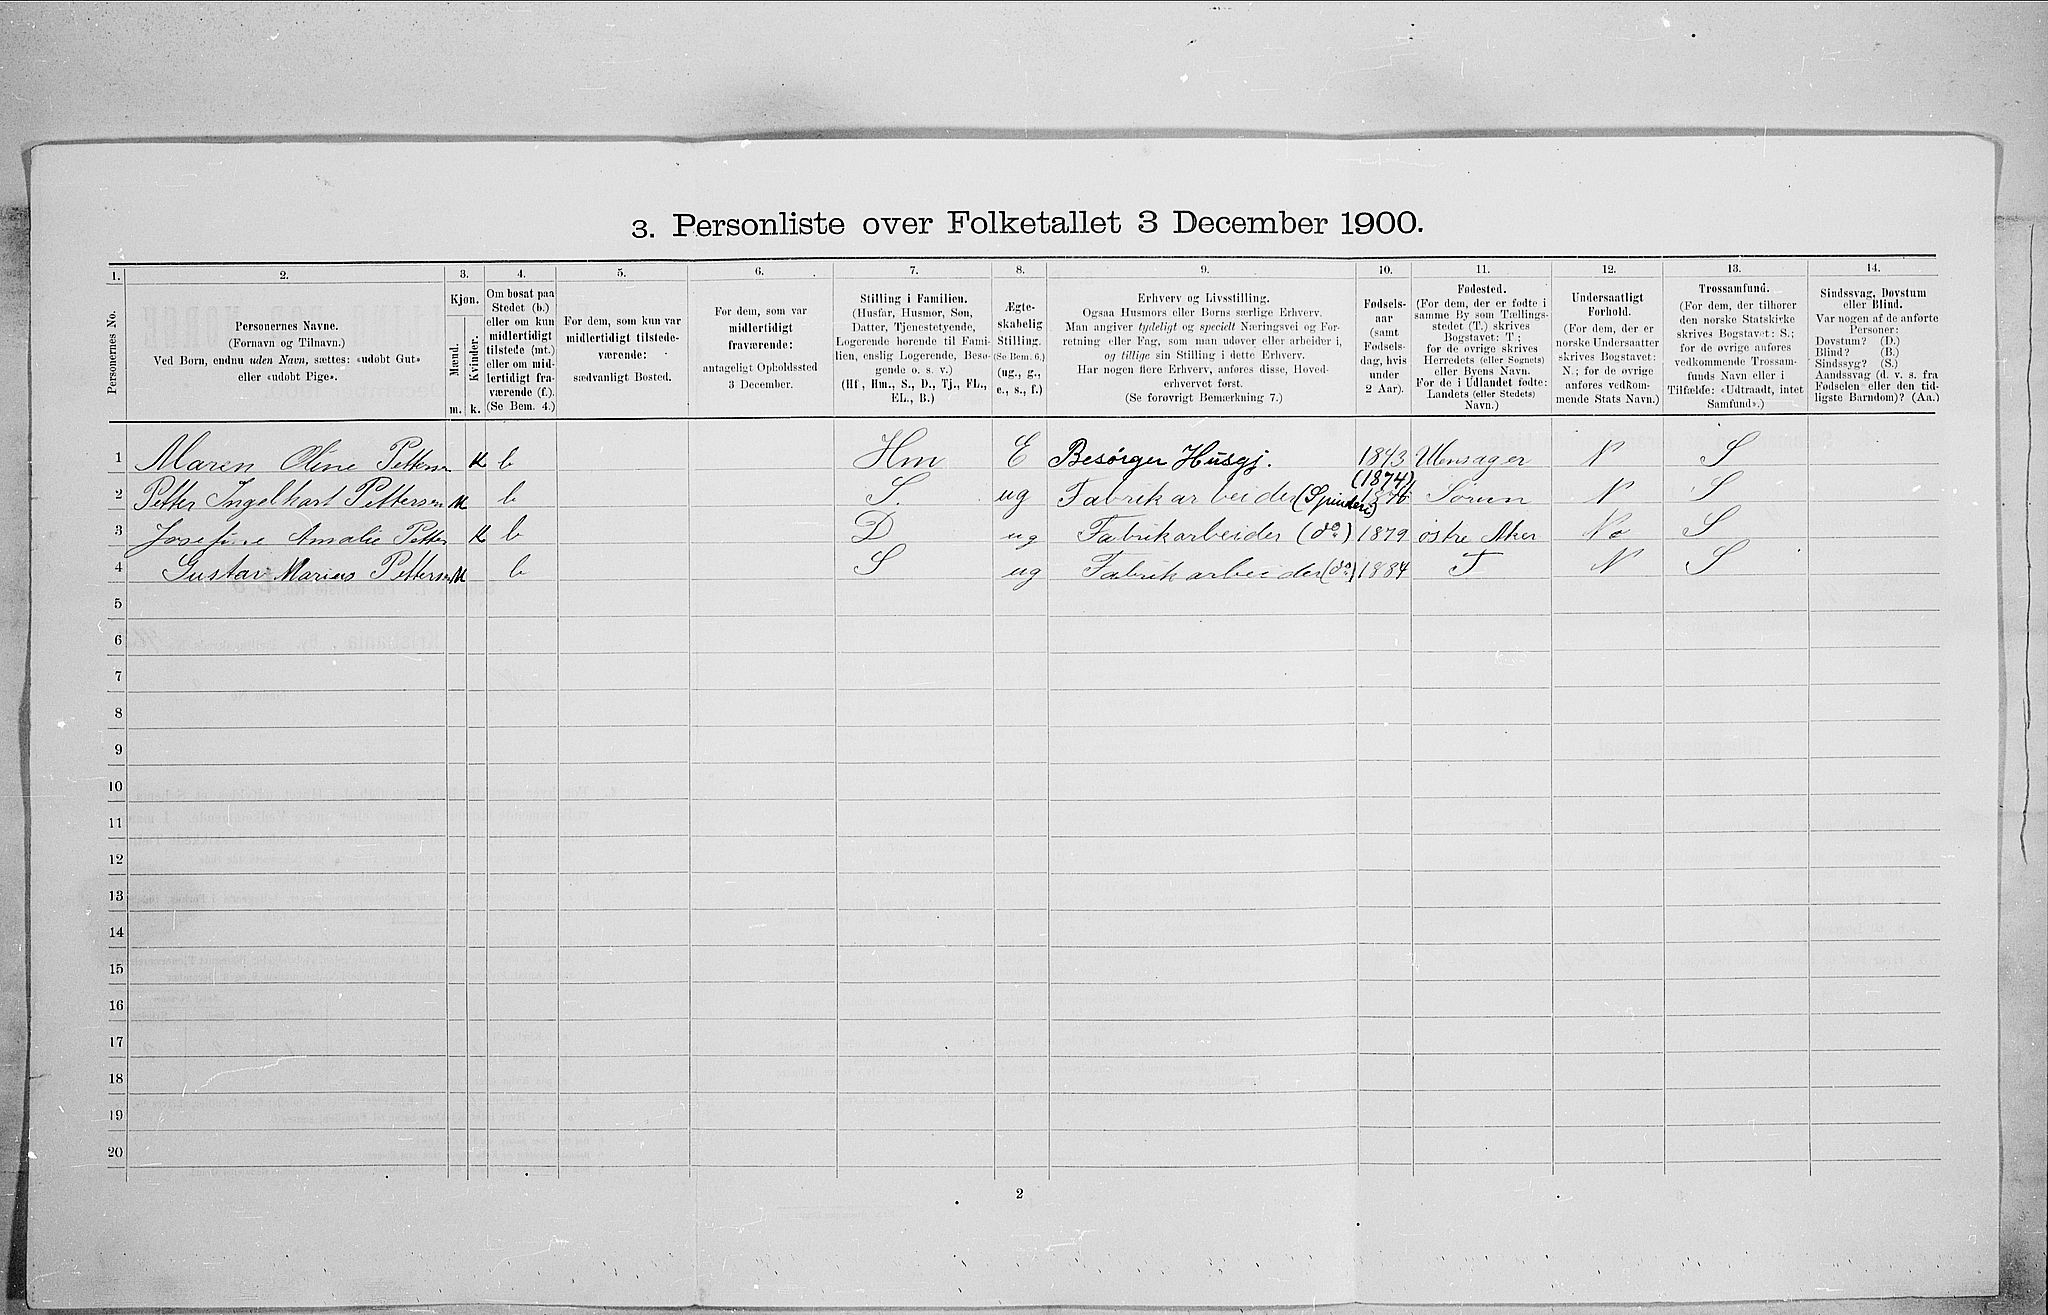 3. Personliste over Folketallet 3 December 1900.
1. 2. 3. 4. 5. 6. 7. 8. 9. 10. 11. 12. 13. 14.
Personernes No.
Personernes Navne.
(Fornavn og Tilnavn.)
Ved Børn, endnu uden Navn, sættes: «udøbt Gut»
eller «udøbt Pige».
Kjøn.
Mænd.
Kvinder.
m. k.
Om bosat paa
Stedet (b.)
eller om kun
midlertidigt
tilstede (mt.)
eller om mid-
lertidigt fra-
værende (f.).
(Se Bem. 4.)
For dem, som kun var
midlertidigt tilstede-
værende:
sædvanligt Bosted.
For dem, som var
midlertidigt
fraværende:
antageligt Opholdssted
3 December.
Stilling i Familien.
(Husfar, Husmor, Søn,
Datter, Tjenestetyende,
Logerende hørende til Fami-
lien, enslig Logerende, Besø-
gende o. s. v.)
(Hf, Hm., S., D., Tj., FL.,
EL., B.)
Ægte-
skabelig
Stilling.
(Se Bem. 6.)
(ug., g.,
e., s., f.)
Erhverv og Livsstilling.
Ogsaa Husmors eller Børns særlige Erhverv.
Man angiver tydeligt og specielt Næringsvei og For-
retning eller Fag, som man udøver eller arbeider i,
og tillige sin Stilling i dette Erhverv.
Har nogen flere Erhverv, anføres disse, Hoved-
erhvervet først.
(Se forøvrigt Bemærkning 7.)
Fødsels-
aar
(samt
Fødsels-
dag, hvis
under
2 Aar).
Fødested.
(For dem, der er fødte i
samme By som Tællings-
stedet (T.) skrives
Bogstavet: T.;
for de øvrige skrives
Herredets (eller Sognets)
eller Byens Navn.
For de i Udlandet fødte:
Landets (eller Stedets)
Navn.)
Undersaatligt
Forhold.
(For dem, der er
norske Undersaatter
skrives Bogstavet:
N.; for de øvrige
anføres vedkom-
mende Stats Navn.)
Trossamfund.
(For dem, der tilhører
den norske Statskirke
skrives Bogstavet: S.;
for de øvrige anføres
vedkommende Trossam-
funds Navn eller i
Tilfælde: «Udtraadt, intet
Samfund».)
Sindssvag, Døvstum
eller Blind.
Var nogen af de anførte
Personer:
Døvstum? (D.)
Blind? (B.)
Sindssyg? (S.)
Aandssvag (d. v. s. fra
Fødselen eller den tid-
ligste Barndom)? (Aa.)
1 Maren Oline Pettersen k b Hm E Besørger Husgj. 1843 Ulensager N S
(1874)
2 Petter Ingelhart Pettersen M b S. ug Fabrikarbeider (Spinderi) 1876 Sørum N S
3 Josefine Amalie Petter k b D ug Fabrikarbeider (do) 1879 østre Aker No S
4 Gustav Marius Pettersen M b S ug Fabrikarbeider (do) 1884 T N S
5
6
7
8
9
10
11
12
13
14
15
16
17
18
19
20
2